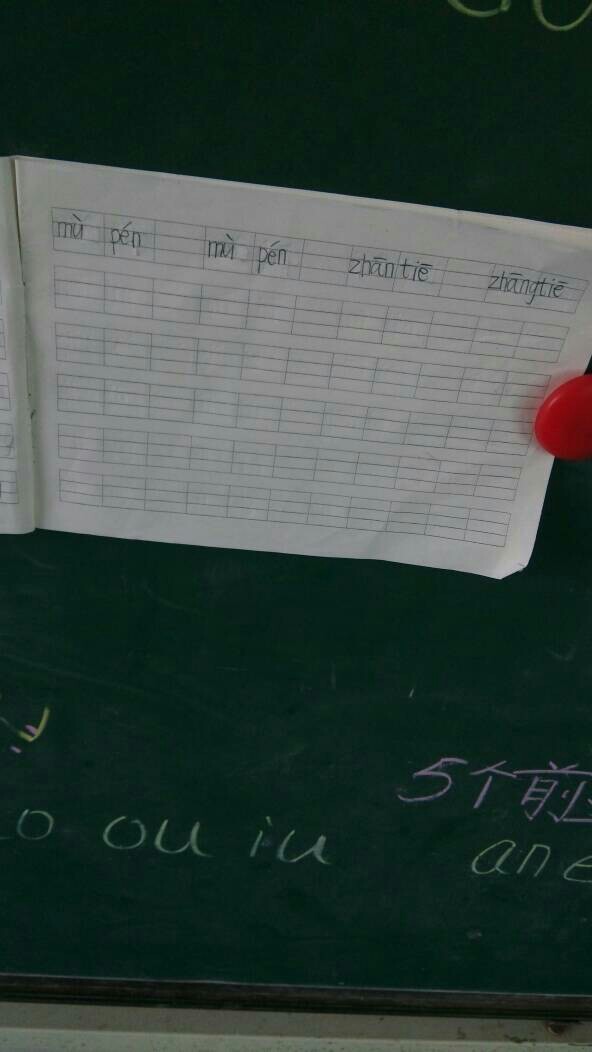 mù pén mù pén zhāntiē zhāngtiē
5个前
ou iu an